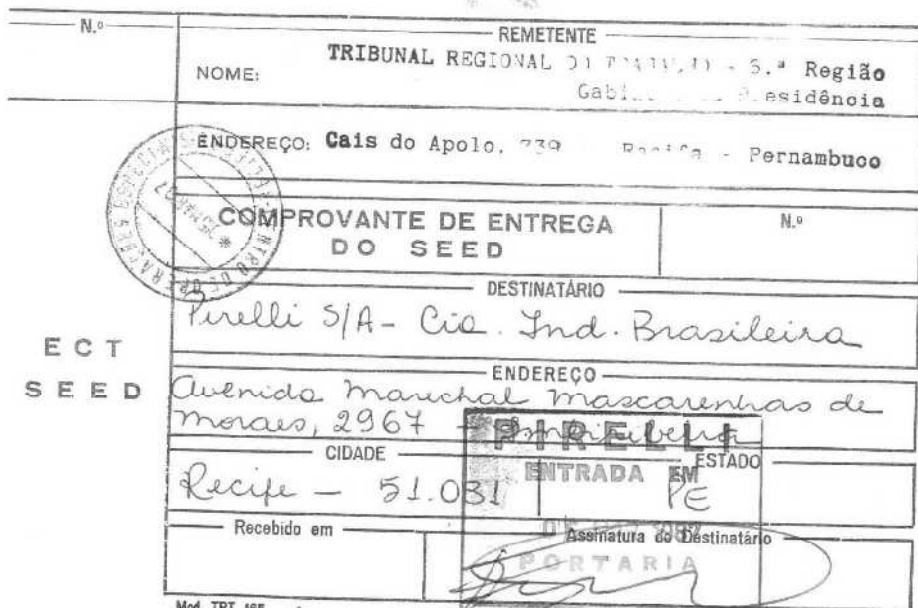 N.º
REMETENTE
NOME: TRIBUNAL REGIONAL - 6.ª Região
ENDEREÇO: Cais do Apolo, 739 - Pernambuco
COMPROVANTE DE ENTREGA
DO SEED
N.º
DESTINATÁRIO
Pirelli S/A - Cia. Ind. Brasileira
ECT
SEED
ENDEREÇO
Avenida Marechal Mascarenhas de
Moraes, 2967 -
PIRELLI
CIDADE
ESTADO
ENTRADA EM
Recife - 51.031
PE
Recebido em
Assinatura do Destinatário
PORTARIA
Mod. TRT 165